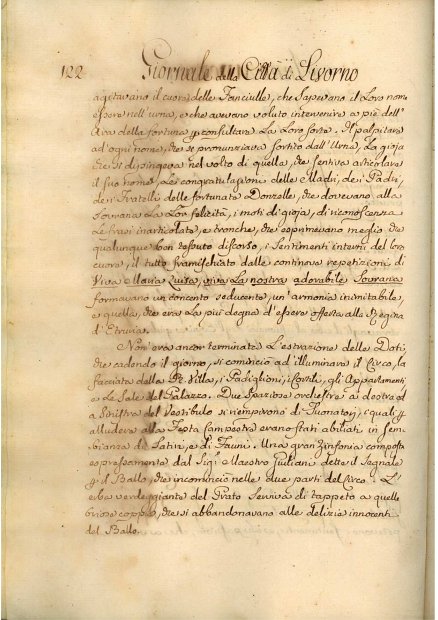 122 Giornale della Città di Livorno
agitavano il cuore delle Fanciulle, che sapevano il Loro nome
essere nell'urna, e che avevano voluto intervenire a piè dell'
Ara della fortuna p consultare La Loro sorte. Il palpitare
ad ogni nome, che si pronunziava sortito dall'Urna, La gioja
che si dipingeva nel volto di quella, che sentiva articolare
il suo nome, Le congratulazioni delle Madri, de i Padri,
de i Fratelli delle fortunate Donzelle, che dovevano alla
Sovrana La Lor felicità, i moti di gioja, di riconoscenza
Le frasi inarticolate, e tronche, che esprimevano meglio che
qualunque ben tessuto discorso, i Sentimenti interni del loro
cuore, il tutto framischiato dalle continove repetizioni di
Viva Maria Luisa, viva La nostra adorabile Sovrana
formavano un concento seducente, un'armonia inimitabile,
e quella, che era La più degna d'essere offerta alla Regina
d'Etruria.
Non era ancor terminata L'estrazione delle Doti
che cadendo il giorno, si cominciò ad illuminare il Circo, La
facciata della R. Villa, i Padiglioni, i Cortili, gli Appartamenti
e Le Sale del Palazzo. Due Spaziose orchestre a destra ed
a Sinistra del Vestibulo si riempirono di Suonatori, i quali p
alludere alla Festa Campestre erano stati abiliati in sem
bianza di Satiri, e di Fauni. Una gran Sinfonia composta
espressamente dal Sigr. Maestro Giuliani dette il Segnale
p il Ballo, che incominciò nelle due parti del Circo. L'
erba verdeggiante del Prato Serviva di tappeto a quelle
briose coppie, che si abbandonavano alle delizie innocenti
del Ballo.